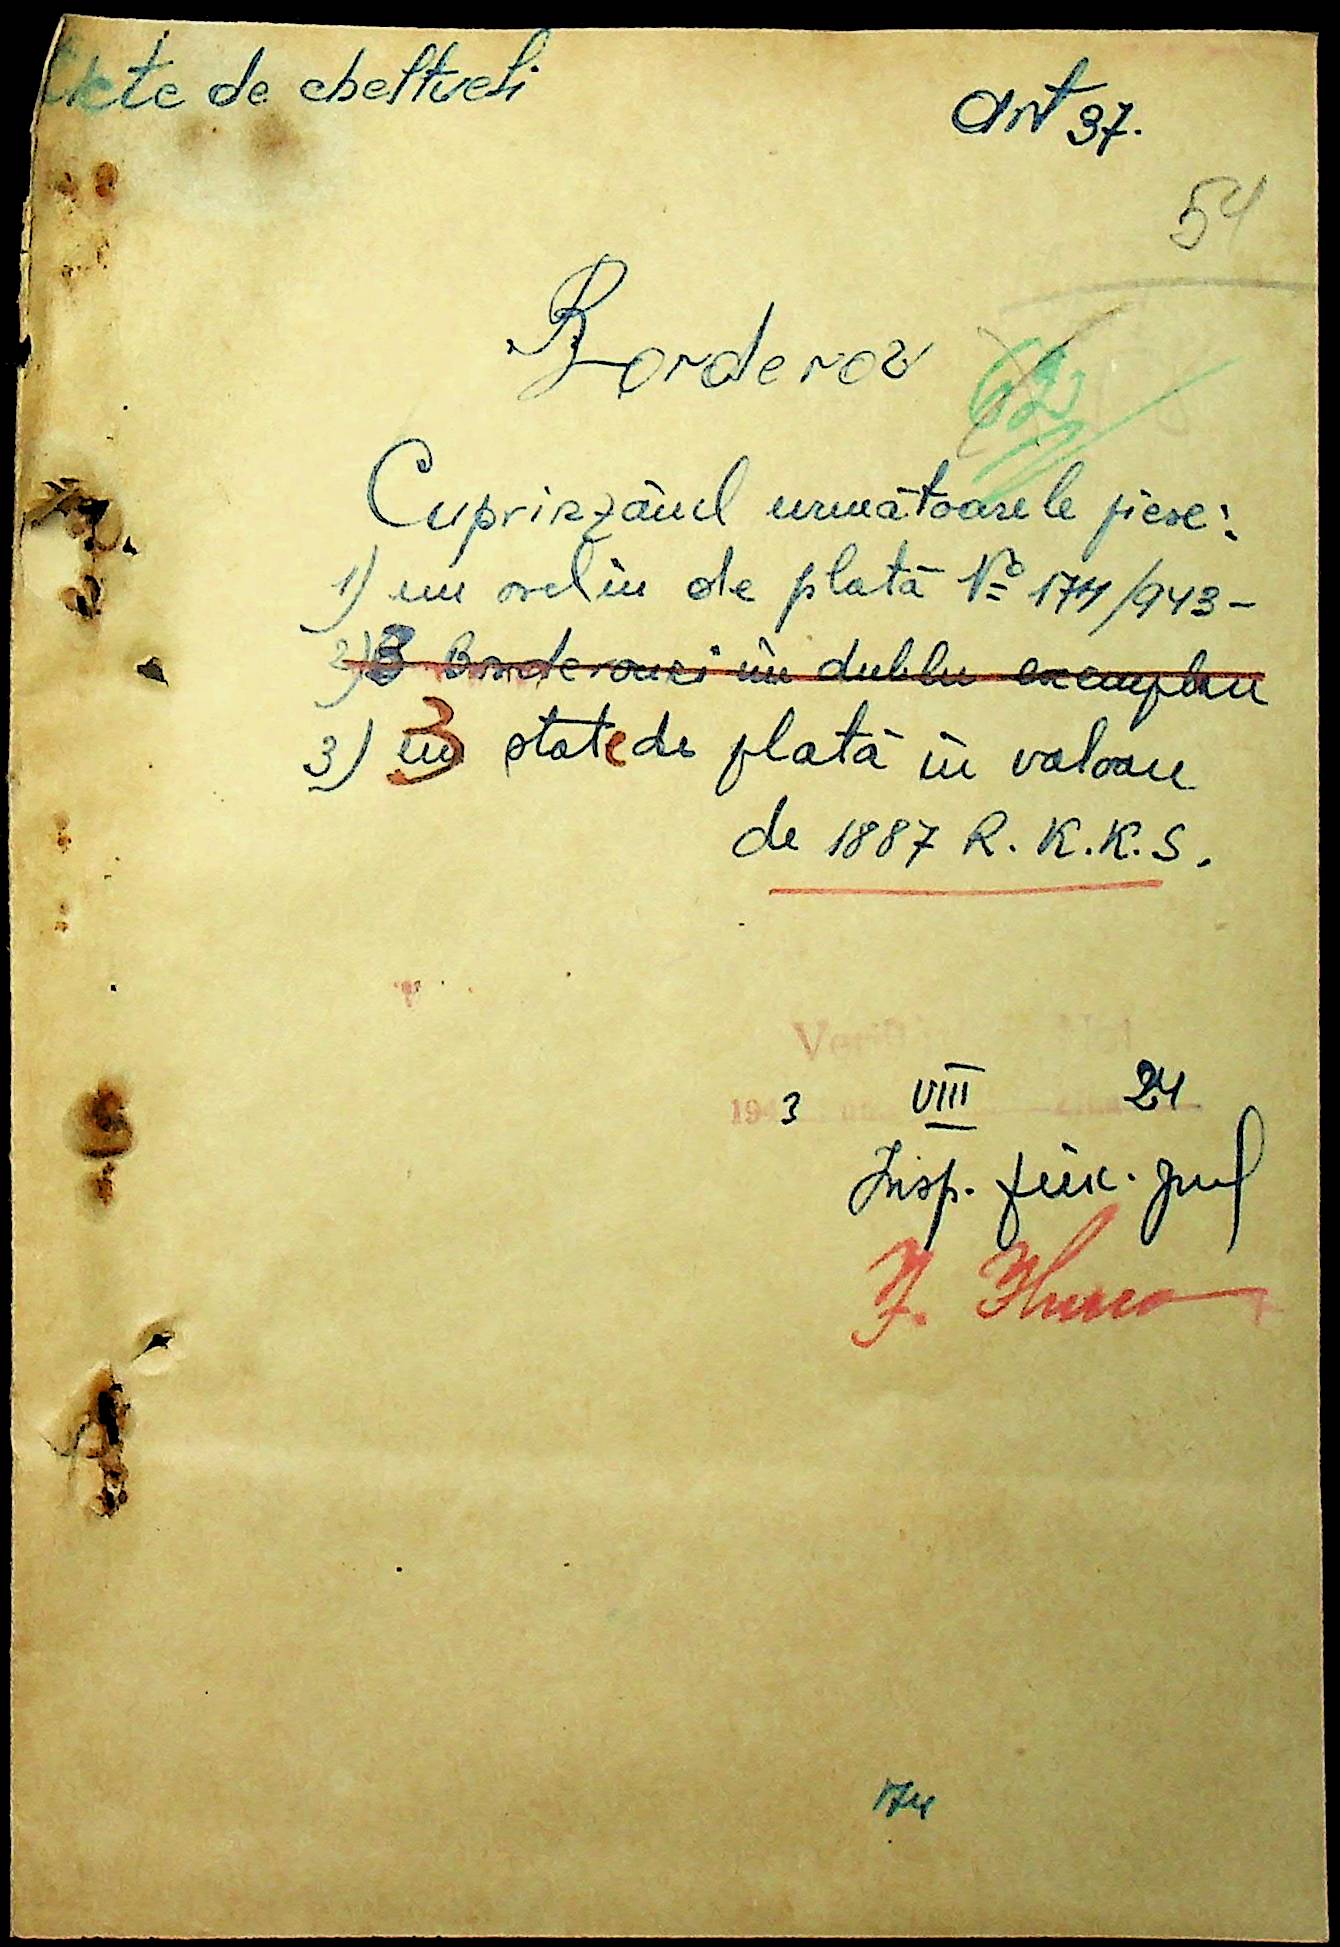 Acte de cheltueli
Art 37.
54
Borderou
62
Cuprinzând următoarele piese:
1) un ordin de plată № 174/943-
2) 3 Borderouri în dublu exemplar
3) 3 state de plată în valoare
de 1887 R.K.K.S.
1943 VIII 24
Insp. fin. jud
174